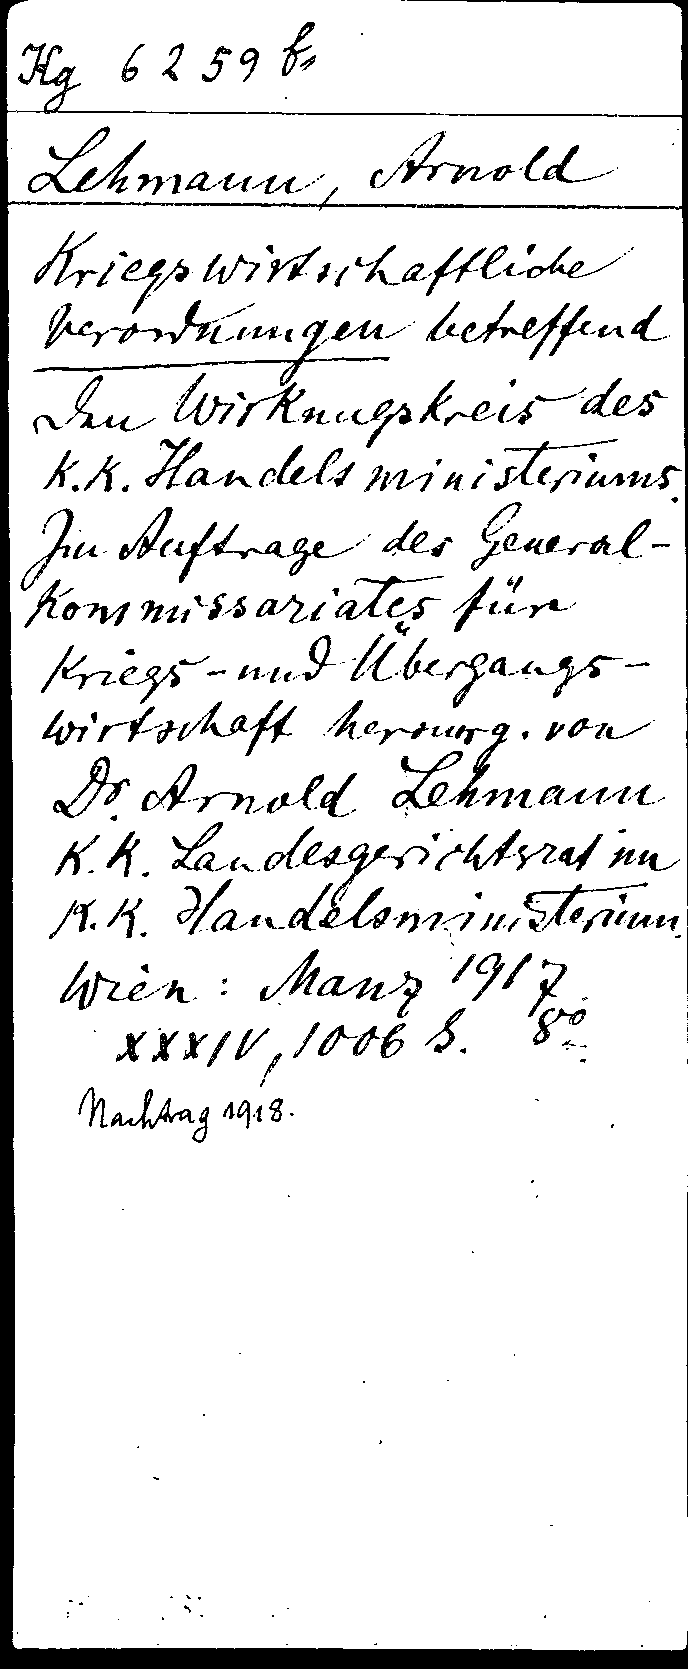 Kg 6259 b,
Lehmann, Arnold
Kriegswirtschaftliche
Verordnungen betreffend
den Wirkungskreis des
K.K. Handelsministeriums.
Im Auftrage des General-
Kommissariates für
Kriegs- und Übergangs-
wirtschaft herausg. von
Dr. Arnold Lehmann
K.K. Landesgerichtsrat im
K.K. Handelsministerium.
Wien: Manz 1917
XXXIV, 1006 S. 8º
Nachtrag 1918.